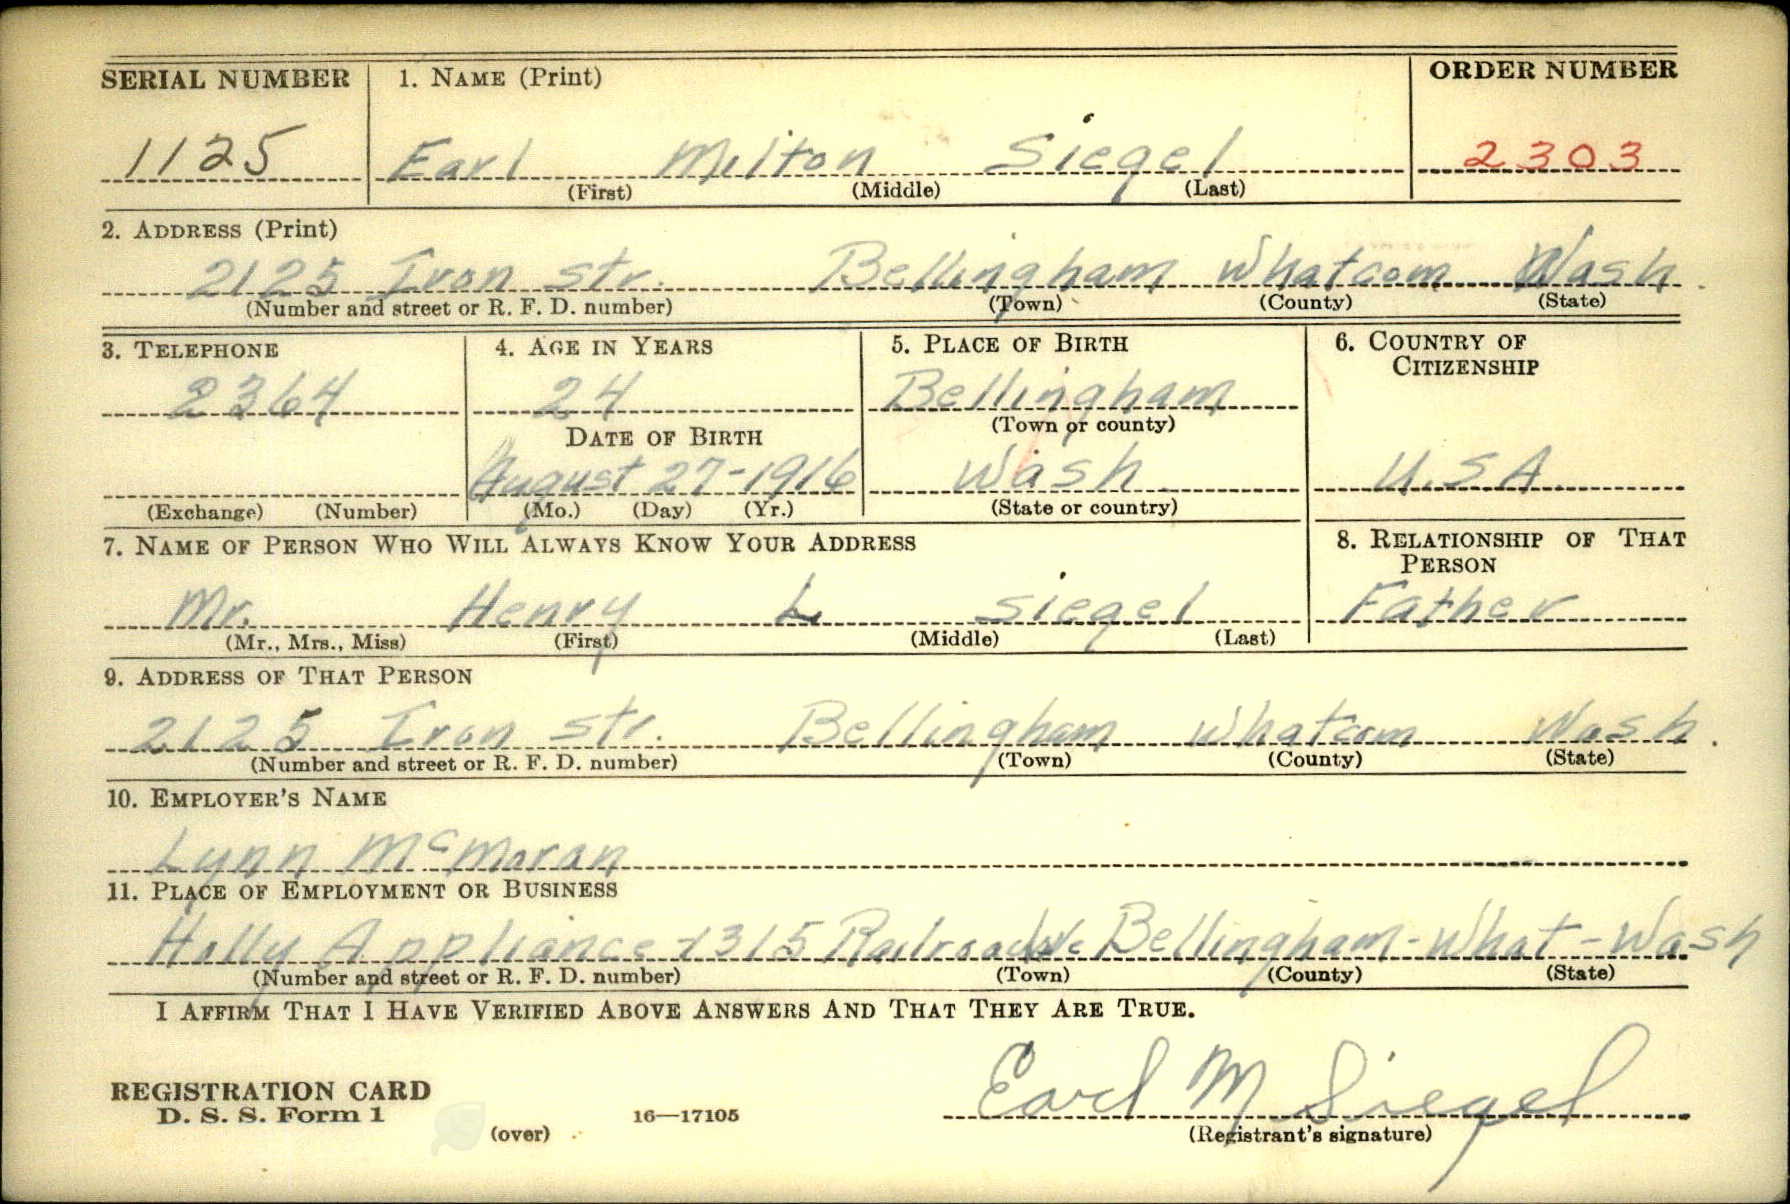 SERIAL NUMBER 1. NAME (Print) ORDER NUMBER
1125 Earl Milton Siegel 2303
(First) (Middle) (Last)
2. ADDRESS (Print)
2125 Iron Str. Bellingham Whatcom Wash.
(Number and street or R. F. D. number) (Town) (County) (State)
3. TELEPHONE 4. AGE IN YEARS 5. PLACE OF BIRTH 6. COUNTRY OF
CITIZENSHIP
2364 24 Bellingham
(Town or county)
DATE OF BIRTH
August 27-1916 Wash. U.S.A.
(Exchange) (Number) (Mo.) (Day) (Yr.) (State or country)
7. NAME OF PERSON WHO WILL ALWAYS KNOW YOUR ADDRESS 8. RELATIONSHIP OF THAT
PERSON
Mr. Henry L Siegel Father
(Mr., Mrs., Miss) (First) (Middle) (Last)
9. ADDRESS OF THAT PERSON
2125 Iron Str. Bellingham Whatcom Wash.
(Number and street or R. F. D. number) (Town) (County) (State)
10. EMPLOYER'S NAME
Lynn McMoran
11. PLACE OF EMPLOYMENT OR BUSINESS
Holly Appliance-1315 Railroad Ave Bellingham-What-Wash
(Number and street or R. F. D. number) (Town) (County) (State)
I AFFIRM THAT I HAVE VERIFIED ABOVE ANSWERS AND THAT THEY ARE TRUE.
Earl M Siegel
REGISTRATION CARD
D. S. S. Form 1 16—17105
(over) (Registrant's signature)